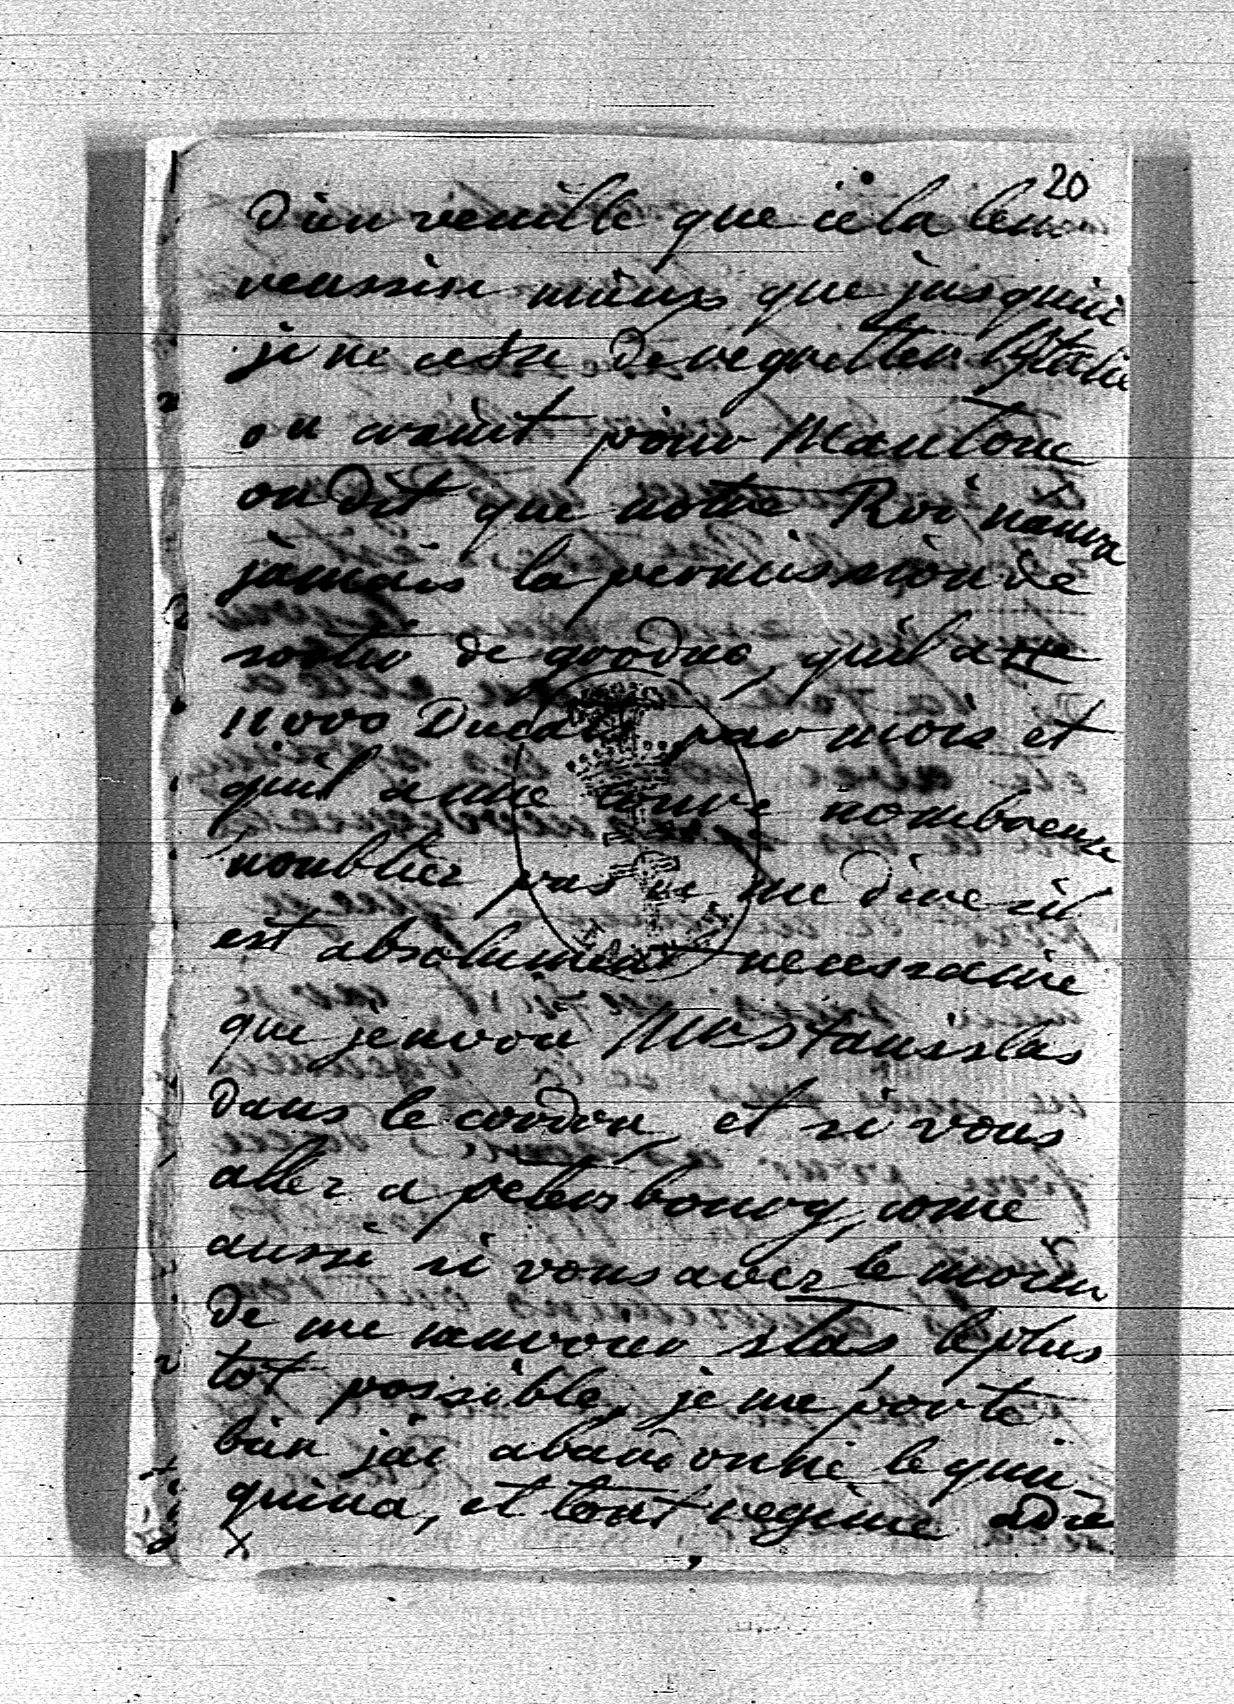 20
Dieu veuille que cela leur
reussise mieux que jusquici
je ne cesse de regretter l'Italie
on craint pour Mantoue
on dit que notre Roi naura
jamais la permission de
sortir de grodno, quil a
11000 Ducats par mois et
quil a une cour nombreuse
noublier pas de me dire sil
est absolument necessaire
que jenvoie Stanisslas
dans le cordon, et si vous
aller a petersbourg, come
aussi si vous avez le moien
de me renvoier stas le plus
tot possible, je me porte
bien jai abandonné le quin
quina, et tout regime adre